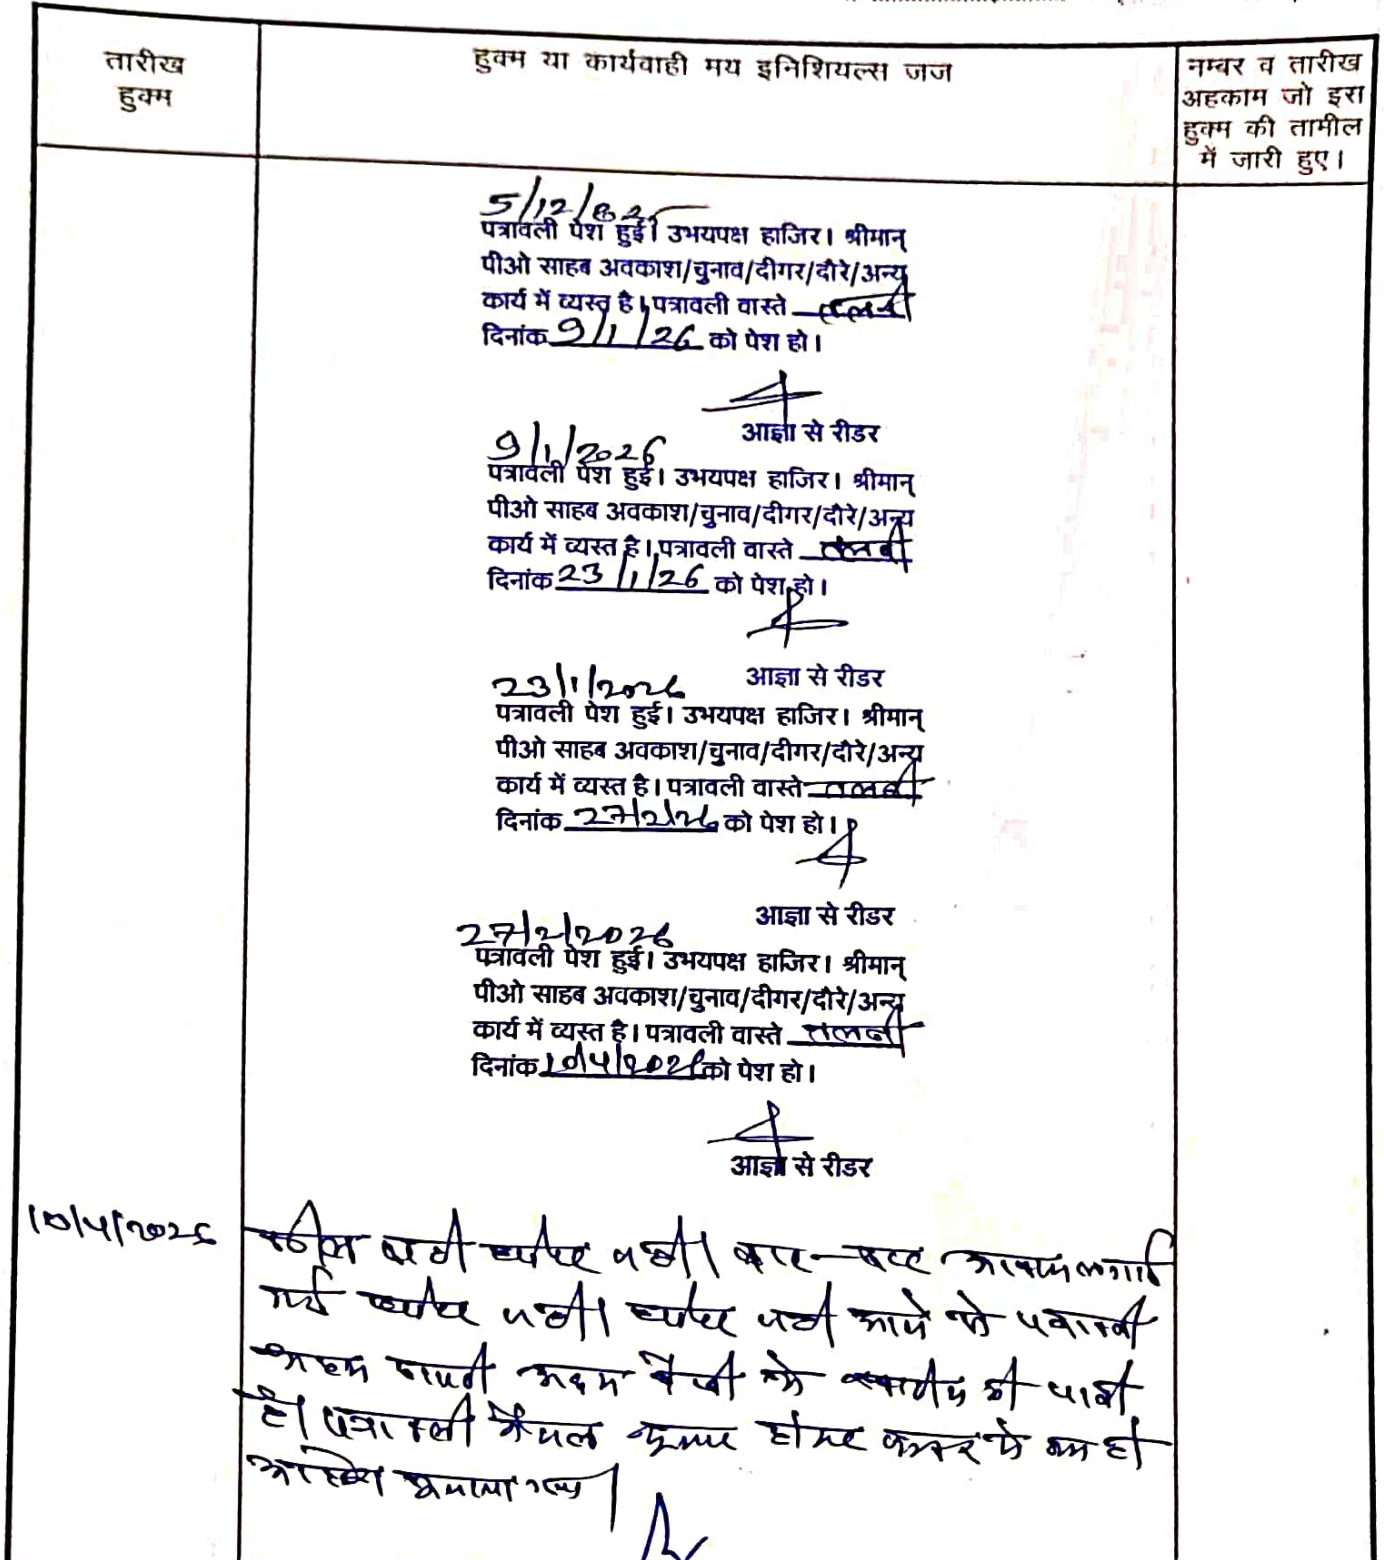 तारीख
हुक्म
हुक्म या कार्यवाही मय इनिशियल्स जज
नम्बर व तारीख
अहकाम जो इस
हुक्म की तामील
में जारी हुए।
5/12/2025
पत्रावली पेश हुई। उभयपक्ष हाजिर। श्रीमान्
पीओ साहब अवकाश/चुनाव/दीगर/दौरे/अन्य
कार्य में व्यस्त है। पत्रावली वास्ते तलबी
दिनांक 9/1/26 को पेश हो।
आज्ञा से रीडर
9/1/2026
पत्रावली पेश हुई। उभयपक्ष हाजिर। श्रीमान्
पीओ साहब अवकाश/चुनाव/दीगर/दौरे/अन्य
कार्य में व्यस्त है। पत्रावली वास्ते तलबी
दिनांक 23/1/26 को पेश हो।
आज्ञा से रीडर
23/1/2026
पत्रावली पेश हुई। उभयपक्ष हाजिर। श्रीमान्
पीओ साहब अवकाश/चुनाव/दीगर/दौरे/अन्य
कार्य में व्यस्त है। पत्रावली वास्ते तलबी
दिनांक 27/2/26 को पेश हो।
आज्ञा से रीडर
27/2/2026
पत्रावली पेश हुई। उभयपक्ष हाजिर। श्रीमान्
पीओ साहब अवकाश/चुनाव/दीगर/दौरे/अन्य
कार्य में व्यस्त है। पत्रावली वास्ते तलबी
दिनांक 10/4/2026 को पेश हो।
आज्ञा से रीडर
10/4/2026
वकील वादी हाजिर नही। बार-बार आवाज लगाई
गई हाजिर नही। हाजिर नही आने से पत्रावली
अदम पैरवी में खारीज की जाती
है। पत्रावली फैसल शुमार होकर नम्बर से कम हो
आदेश सुनाया गया।